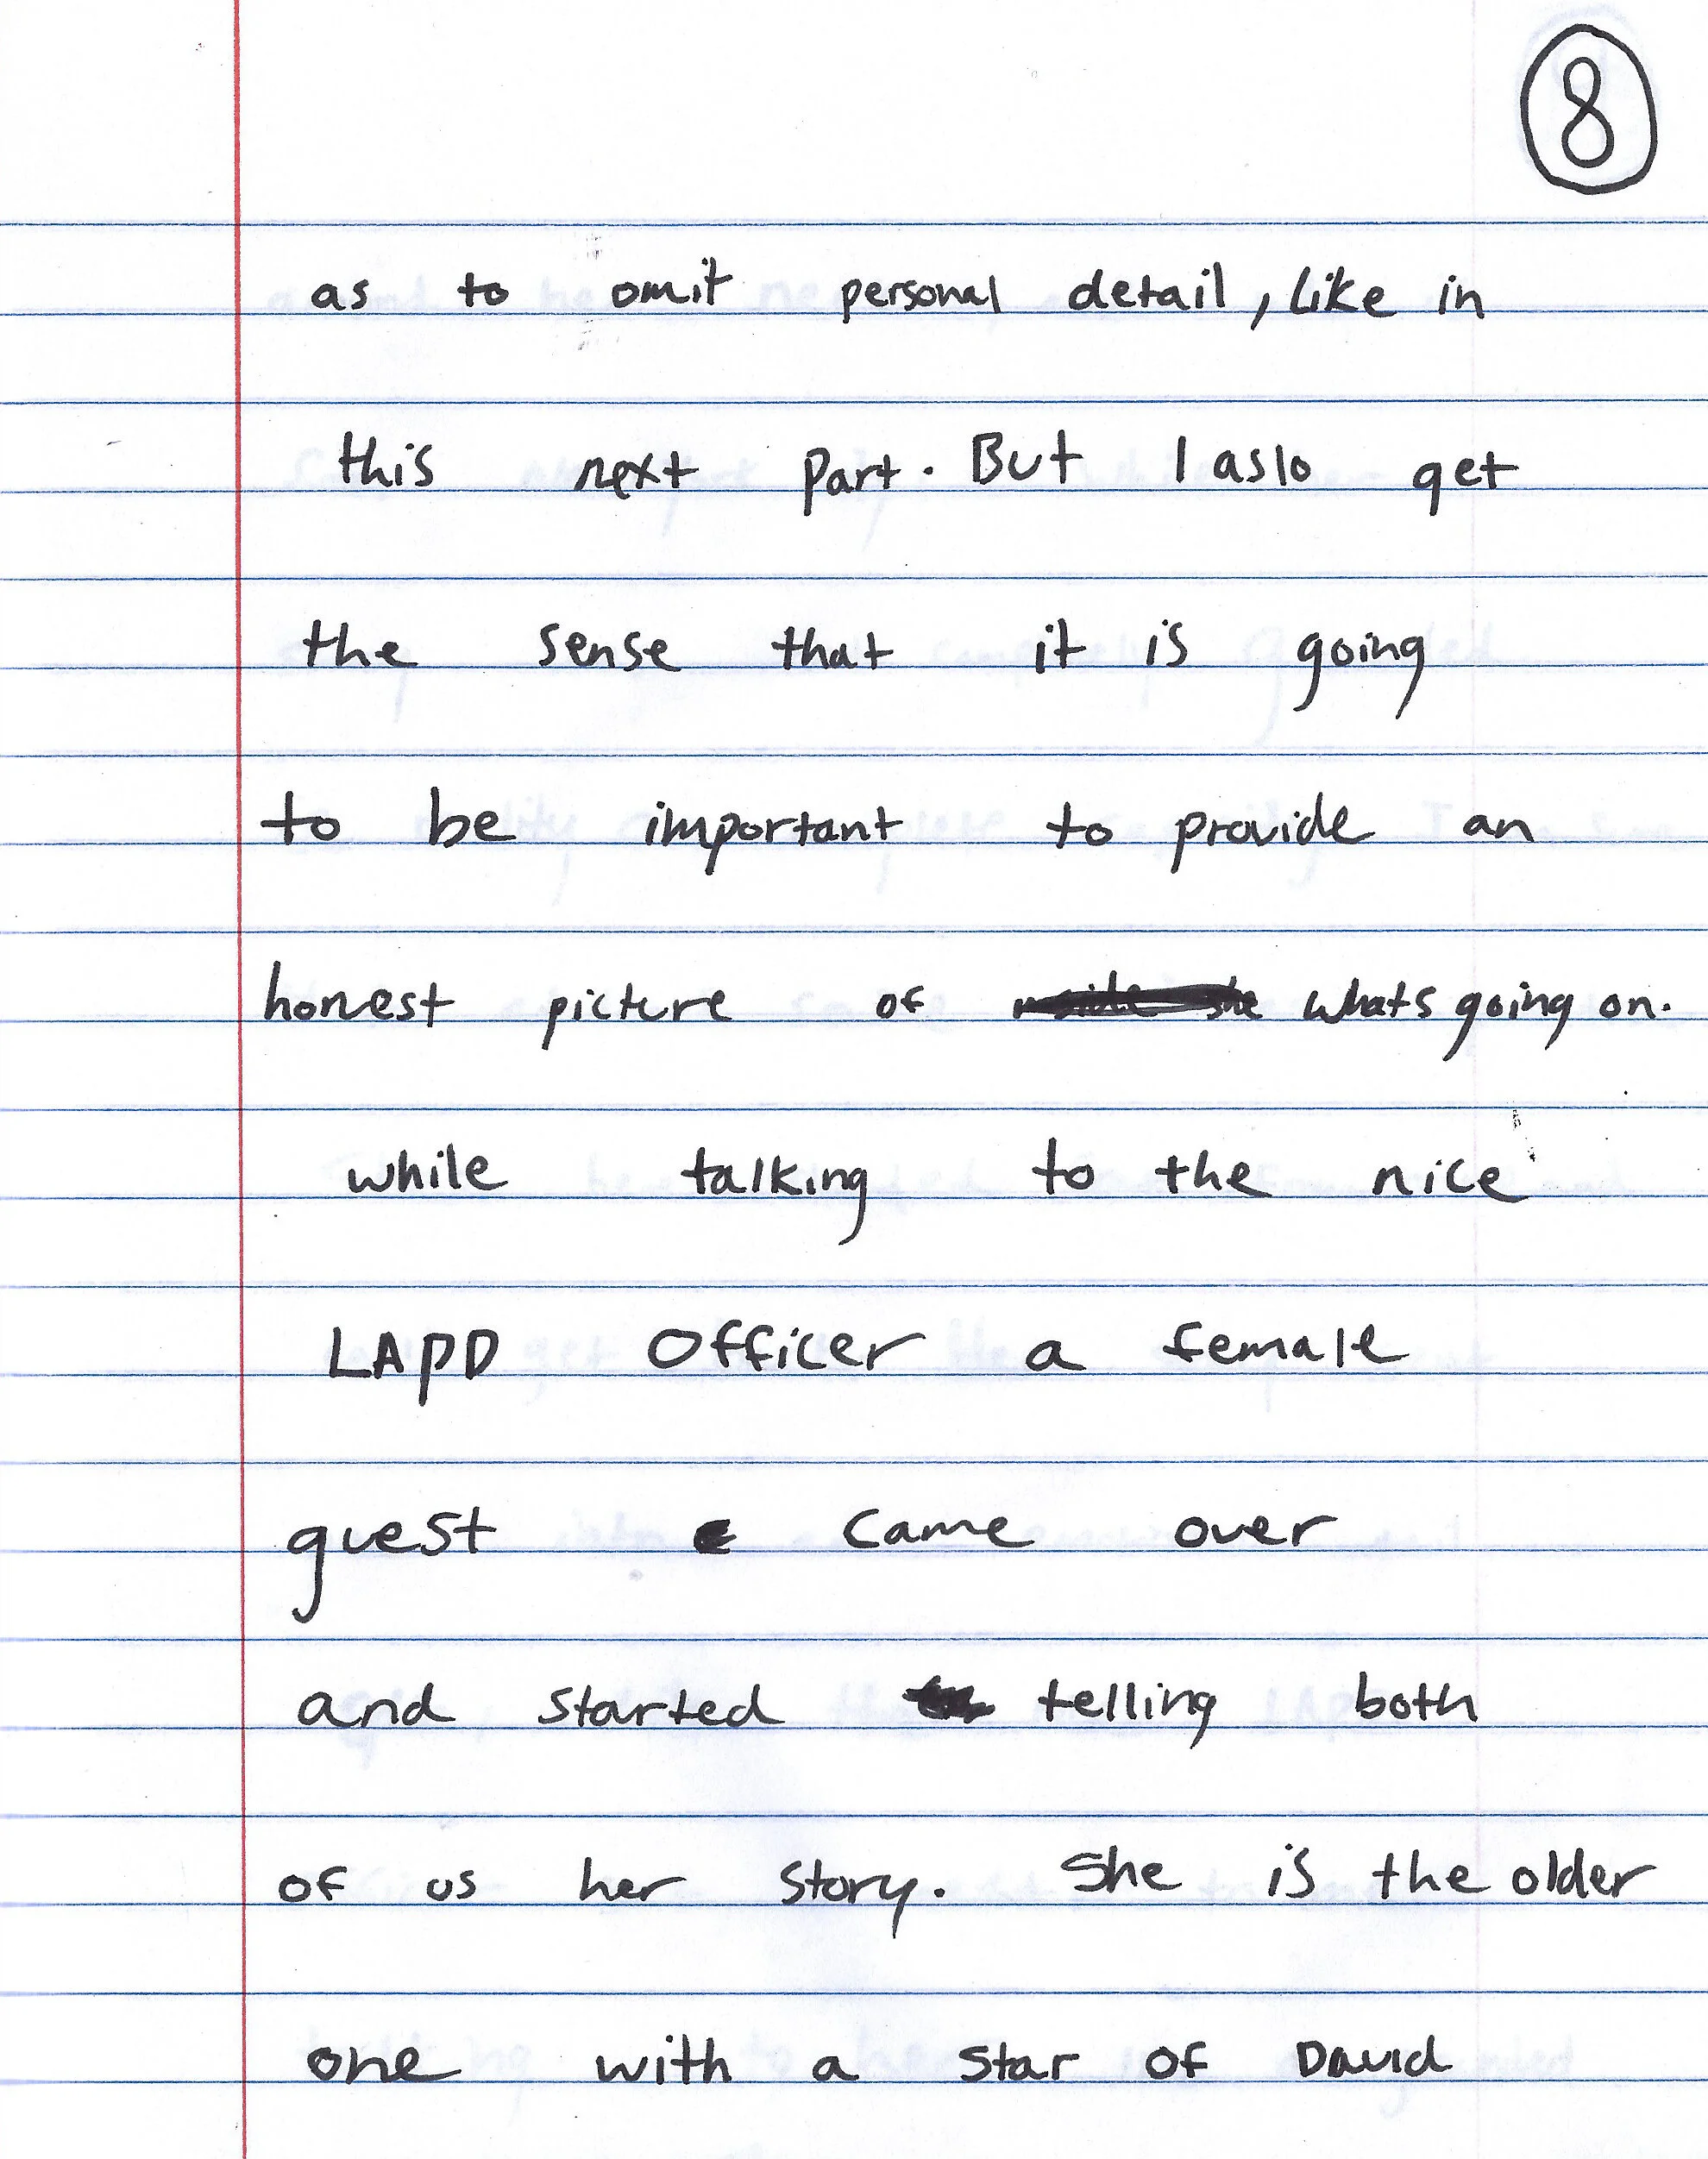 8
as to omit personal detail, like in
this next part. But I aslo get
the sense that it is going
to be important to provide an
honest picture of whats going on.
while talking to the nice
LAPD Officer a female
guest came over
and started telling both
of us her story. She is the older
one with a star of David